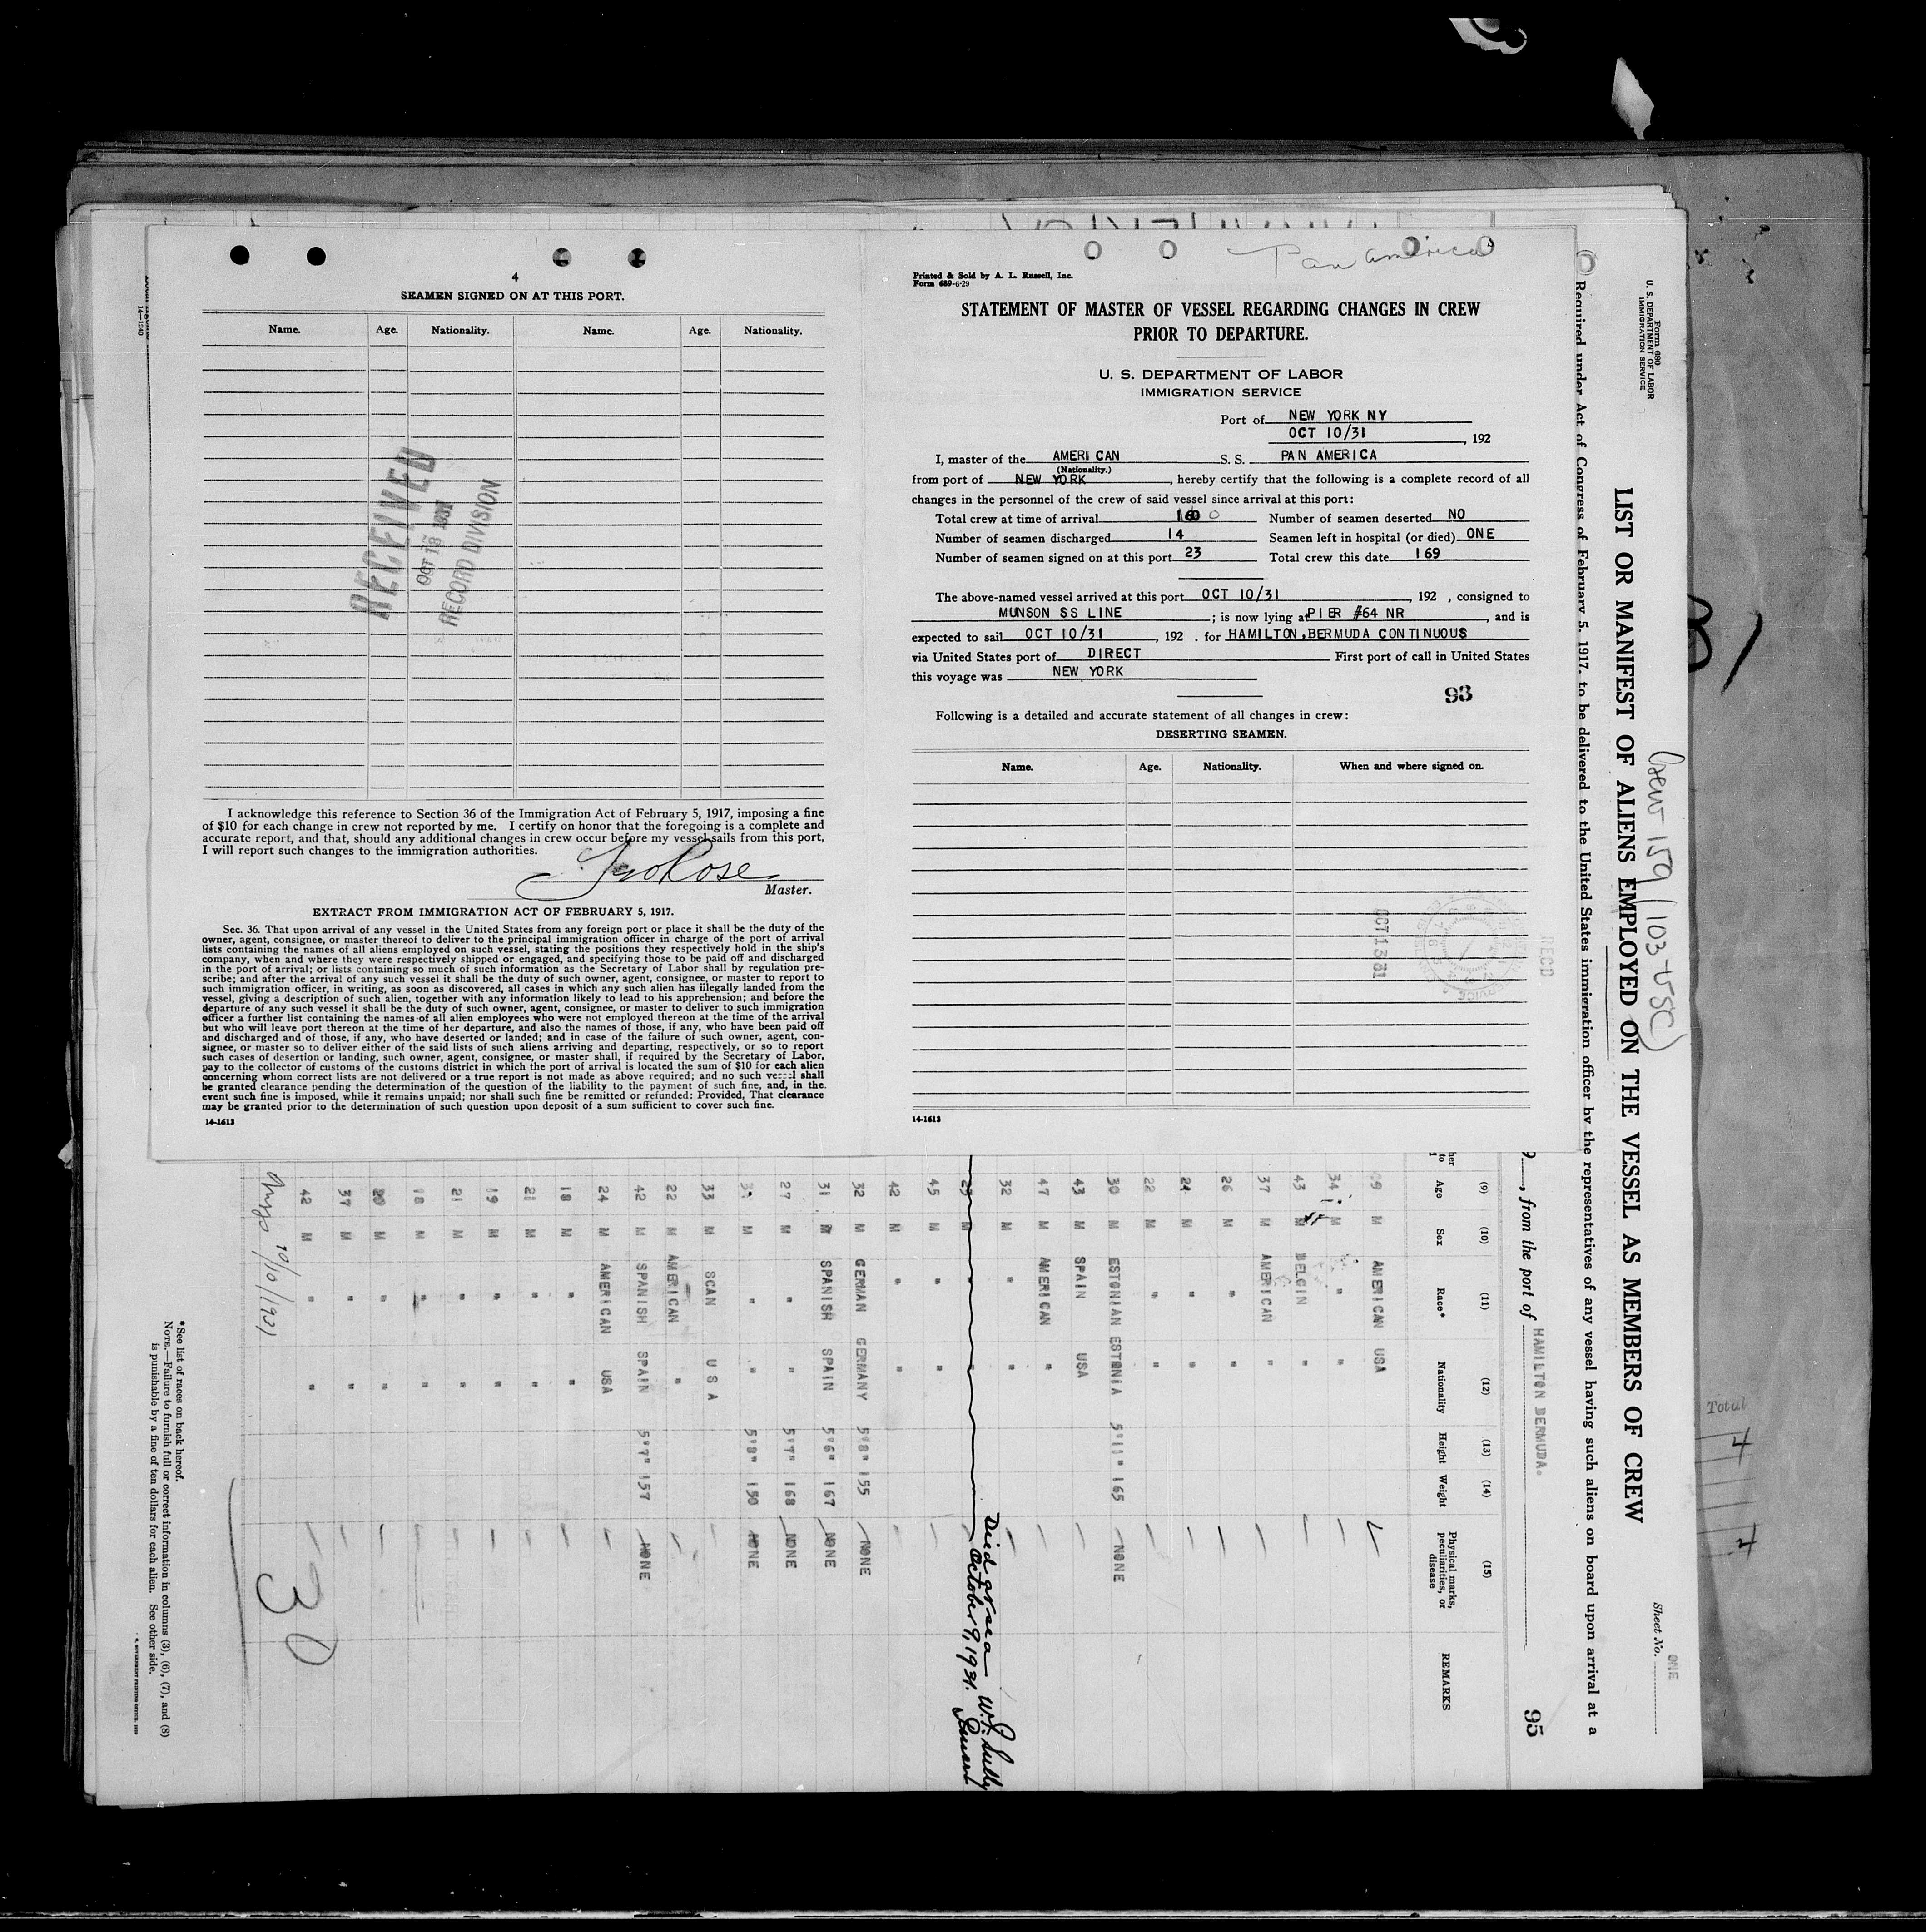 4
SEAMEN SIGNED ON AT THIS PORT.
Name. Age. Nationality. Name. Age. Nationality.
RECEIVED
OCT 18 1931
RECORD DIVISION
I acknowledge this reference to Section 36 of the Immigration Act of February 5, 1917, imposing a fine
of $10 for each change in crew not reported by me. I certify on honor that the foregoing is a complete and
accurate report, and that, should any additional changes in crew occur before my vessel sails from this port,
I will report such changes to the immigration authorities.
Geo Rose
Master.
EXTRACT FROM IMMIGRATION ACT OF FEBRUARY 5, 1917.
Sec. 36. That upon arrival of any vessel in the United States from any foreign port or place it shall be the duty of the
owner, agent, consignee, or master thereof to deliver to the principal immigration officer in charge of the port of arrival
lists containing the names of all aliens employed on such vessel, stating the positions they respectively hold in the ship's
company, when and where they were respectively shipped or engaged, and specifying those to be paid off and discharged
in the port of arrival; or lists containing so much of such information as the Secretary of Labor shall by regulation pre-
scribe; and after the arrival of any such vessel it shall be the duty of such owner, agent, consignee, or master to report to
such immigration officer, in writing, as soon as discovered, all cases in which any such alien has illegally landed from the
vessel, giving a description of such alien, together with any information likely to lead to his apprehension; and before the
departure of any such vessel it shall be the duty of such owner, agent, consignee, or master to deliver to such immigration
officer a further list containing the names of all alien employees who were not employed thereon at the time of the arrival
but who will leave port thereon at the time of her departure, and also the names of those, if any, who have been paid off
and discharged and of those, if any, who have deserted or landed; and in case of the failure of such owner, agent, con-
signee, or master so to deliver either of the said lists of such aliens arriving and departing, respectively, or so to report
such cases of desertion or landing, such owner, agent, consignee, or master shall, if required by the Secretary of Labor,
pay to the collector of customs of the customs district in which the port of arrival is located the sum of $10 for each alien
concerning whom correct lists are not delivered or a true report is not made as above required; and no such vessel shall
be granted clearance pending the determination of the question of the liability to the payment of such fine, and, in the
event such fine is imposed, while it remains unpaid; nor shall such fine be remitted or refunded: Provided, That clearance
may be granted prior to the determination of such question upon deposit of a sum sufficient to cover such fine.
14-1613
Pan America
Printed & Sold by A. L. Russell, Inc.
Form 689-6-29
STATEMENT OF MASTER OF VESSEL REGARDING CHANGES IN CREW
PRIOR TO DEPARTURE.
U. S. DEPARTMENT OF LABOR
IMMIGRATION SERVICE
Port of NEW YORK NY
OCT 10/31, 192
I, master of the AMERICAN S. S. PAN AMERICA
(Nationality.)
from port of NEW YORK, hereby certify that the following is a complete record of all
changes in the personnel of the crew of said vessel since arrival at this port:
Total crew at time of arrival 160 Number of seamen deserted NO
Number of seamen discharged 14 Seamen left in hospital (or died) ONE
Number of seamen signed on at this port 23 Total crew this date 169
The above-named vessel arrived at this port OCT 10/31, 192 , consigned to
MUNSON SS LINE; is now lying at PIER #64 NR, and is
expected to sail OCT 10/31, 192 . for HAMILTON,BERMUDA CONTINUOUS
via United States port of DIRECT First port of call in United States
this voyage was NEW YORK
93
Following is a detailed and accurate statement of all changes in crew:
DESERTING SEAMEN.
Name. Age. Nationality. When and where signed on.
OCT 13 31
RECD
14-1613
Form 680
U. S. DEPARTMENT OF LABOR
IMMIGRATION SERVICE
Sheet No. ONE
Crew 159 (103 USC)
LIST OR MANIFEST OF ALIENS EMPLOYED ON THE VESSEL AS MEMBERS OF CREW
Required under Act of Congress of February 5, 1917, to be delivered to the United States immigration officer by the representatives of any vessel having such aliens on board upon arrival at a
, from the port of HAMILTON BERMUDA.
95
(9) (10) (11) (12) (13) (14) (15)
Age Sex Race* Nationality Height Weight Physical marks, peculiarities, or disease REMARKS
M AMERICAN USA
34 M " "
43 M BELGIN "
37 M AMERICAN "
26 M " "
24 M " "
22 M " "
30 M ESTONIAN ESTONIA 5'11" 165 NONE
43 M SPAIN USA
47 M AMERICAN "
32 M " "
23 M " " Died at sea October 9, 1931. W. J. Sully
45 M " "
42 M " "
32 M GERMAN GERMANY 5'8" 155 NONE
31 M SPANISH SPAIN 5'6" 167 NONE
27 M " " 5'7" 168 NONE
M " " 5'8" 150 NONE
33 M SCAN U S A
22 M AMERICAN "
42 M SPANISH SPAIN 5'7" 157 NONE
24 M AMERICAN USA
18 M " "
21 M " "
19 M " "
21 M " "
18 M " "
20 M " "
37 M " "
42 M " "
10/10/1931
30
*See list of races on back hereof.
NOTE.—Failure to furnish full or correct information in columns (3), (6), (7), and (8)
is punishable by a fine of ten dollars for each alien. See other side.
14—1240
81
Total
4
4